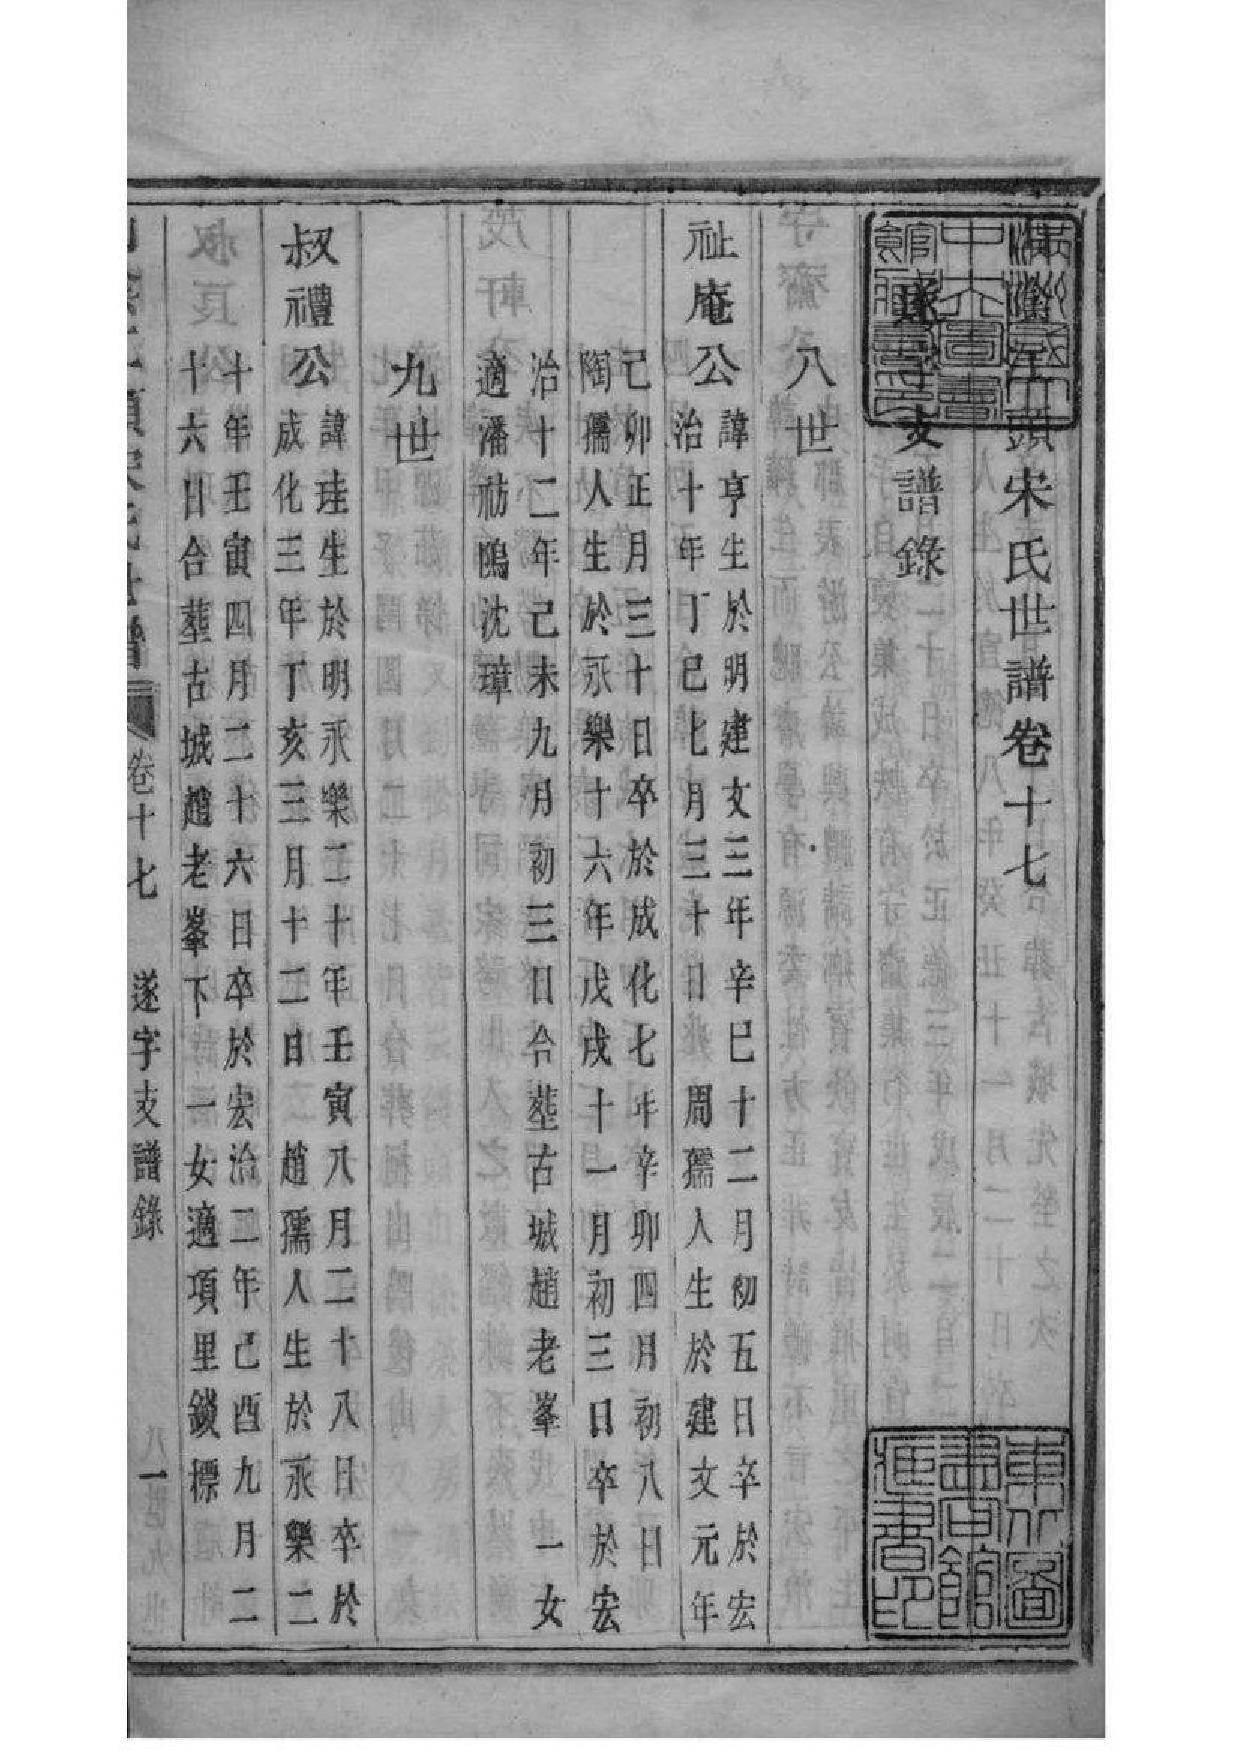 頭宋氏世譜卷十七
遂字支譜錄
八世
祉庵公
諱亨生於明建文三年辛巳十二月初五日卒於宏
治十年丁巳七月三十日 周孺人生於建文元年
己卯正月三十日卒於成化七年辛卯四月初八日
陶孺人生於永樂十六年戊戌十一月初三日卒於宏
治十二年己未九月初三日合塟古城趙老峯 一女
適潘祊隝沈璋
九世
叔禮公
諱珪生於明永樂二十年壬寅八月二十八日卒於
成化三年丁亥三月十二日 趙孺人生於永樂二
十年壬寅四月二十六日卒於宏治二年己酉九月二
十六日合塟古城趙老峯下 一女適項里鎖標
卷十七 遂字支譜錄 一